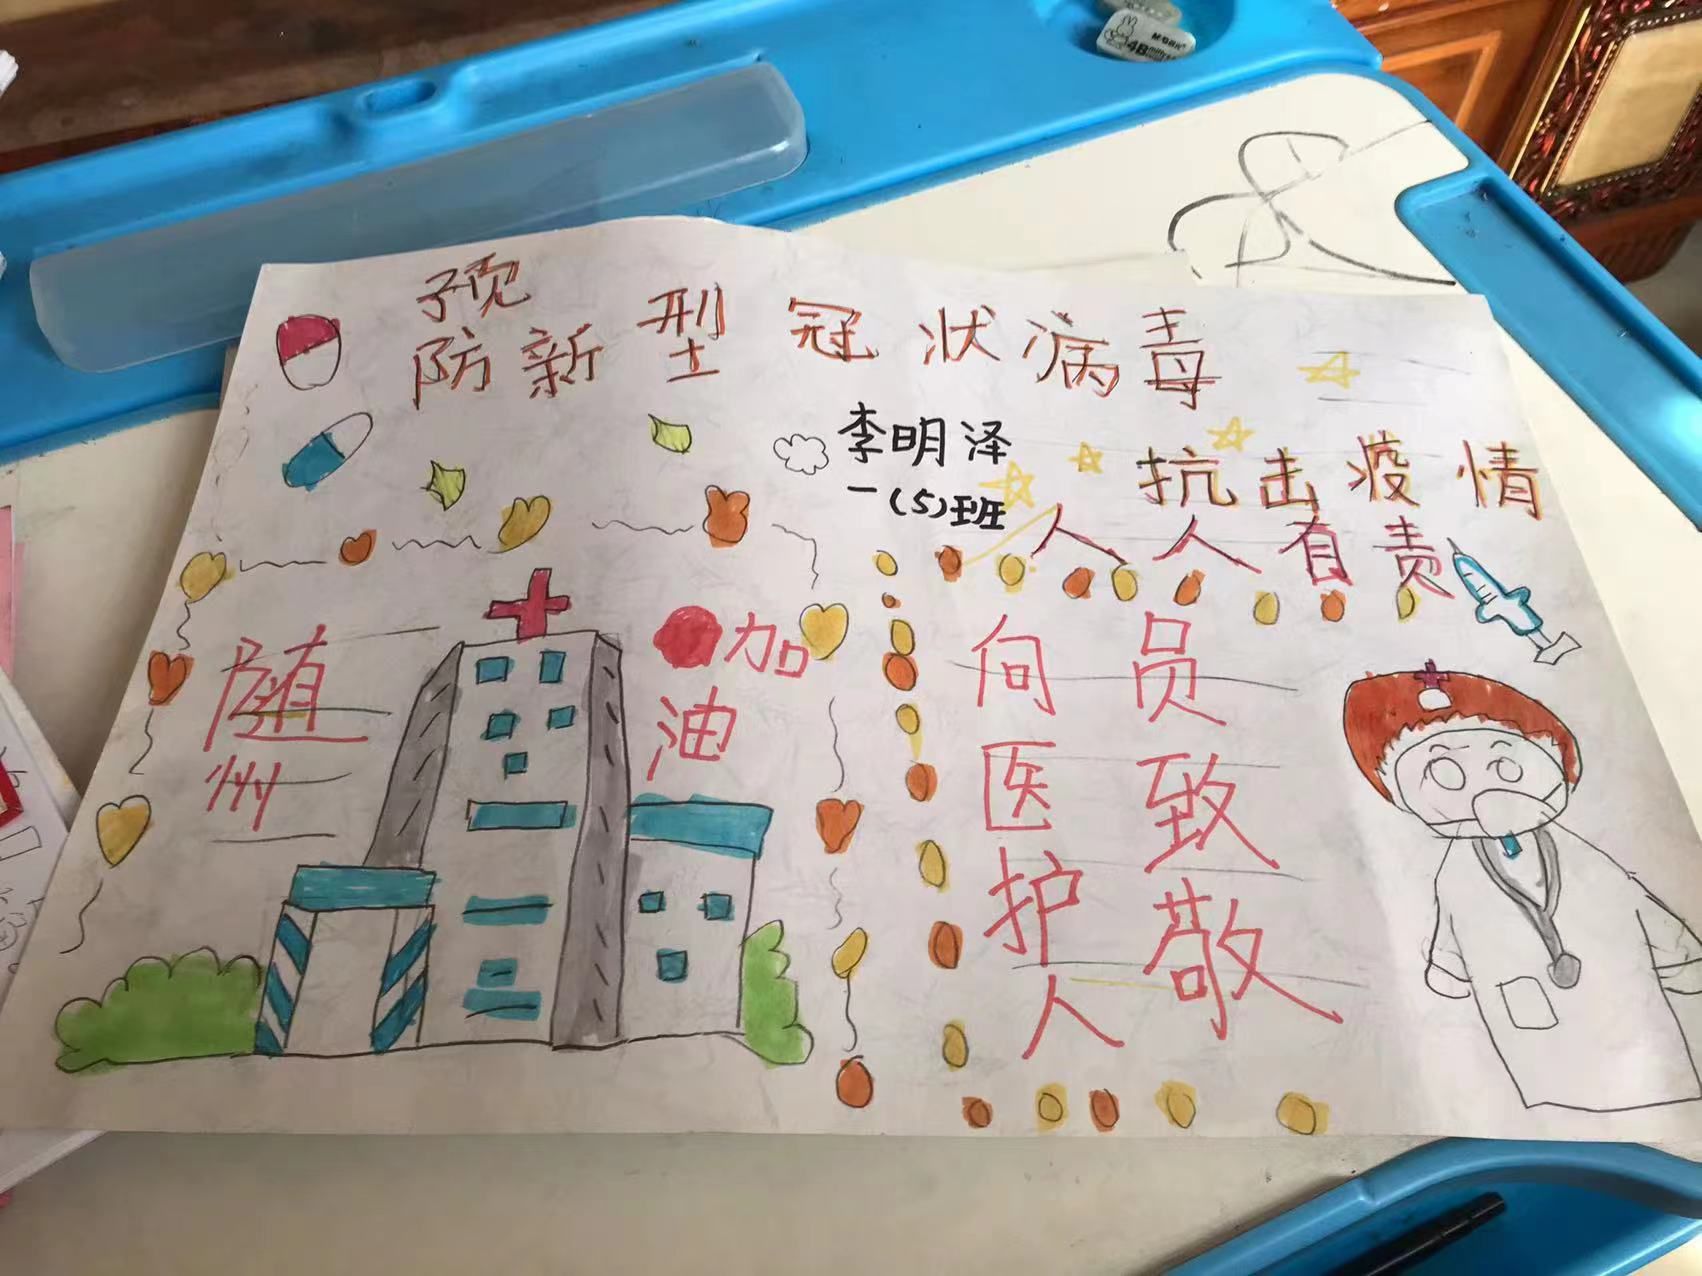 预
防新型冠状病毒
李明泽
一(5)班
抗击疫情
人人有责
随州
加油
向医护人
员致敬
4B